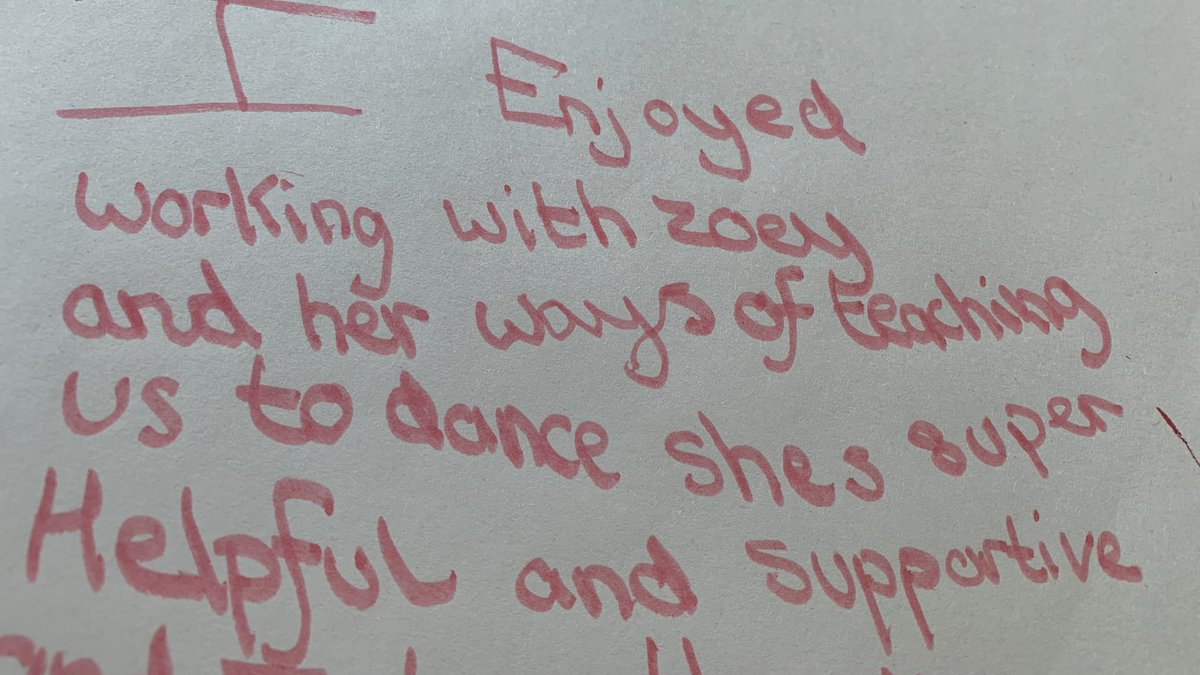 I Enjoyed
working with zoey
and her ways of teaching
us to dance shes super
Helpful and supportive